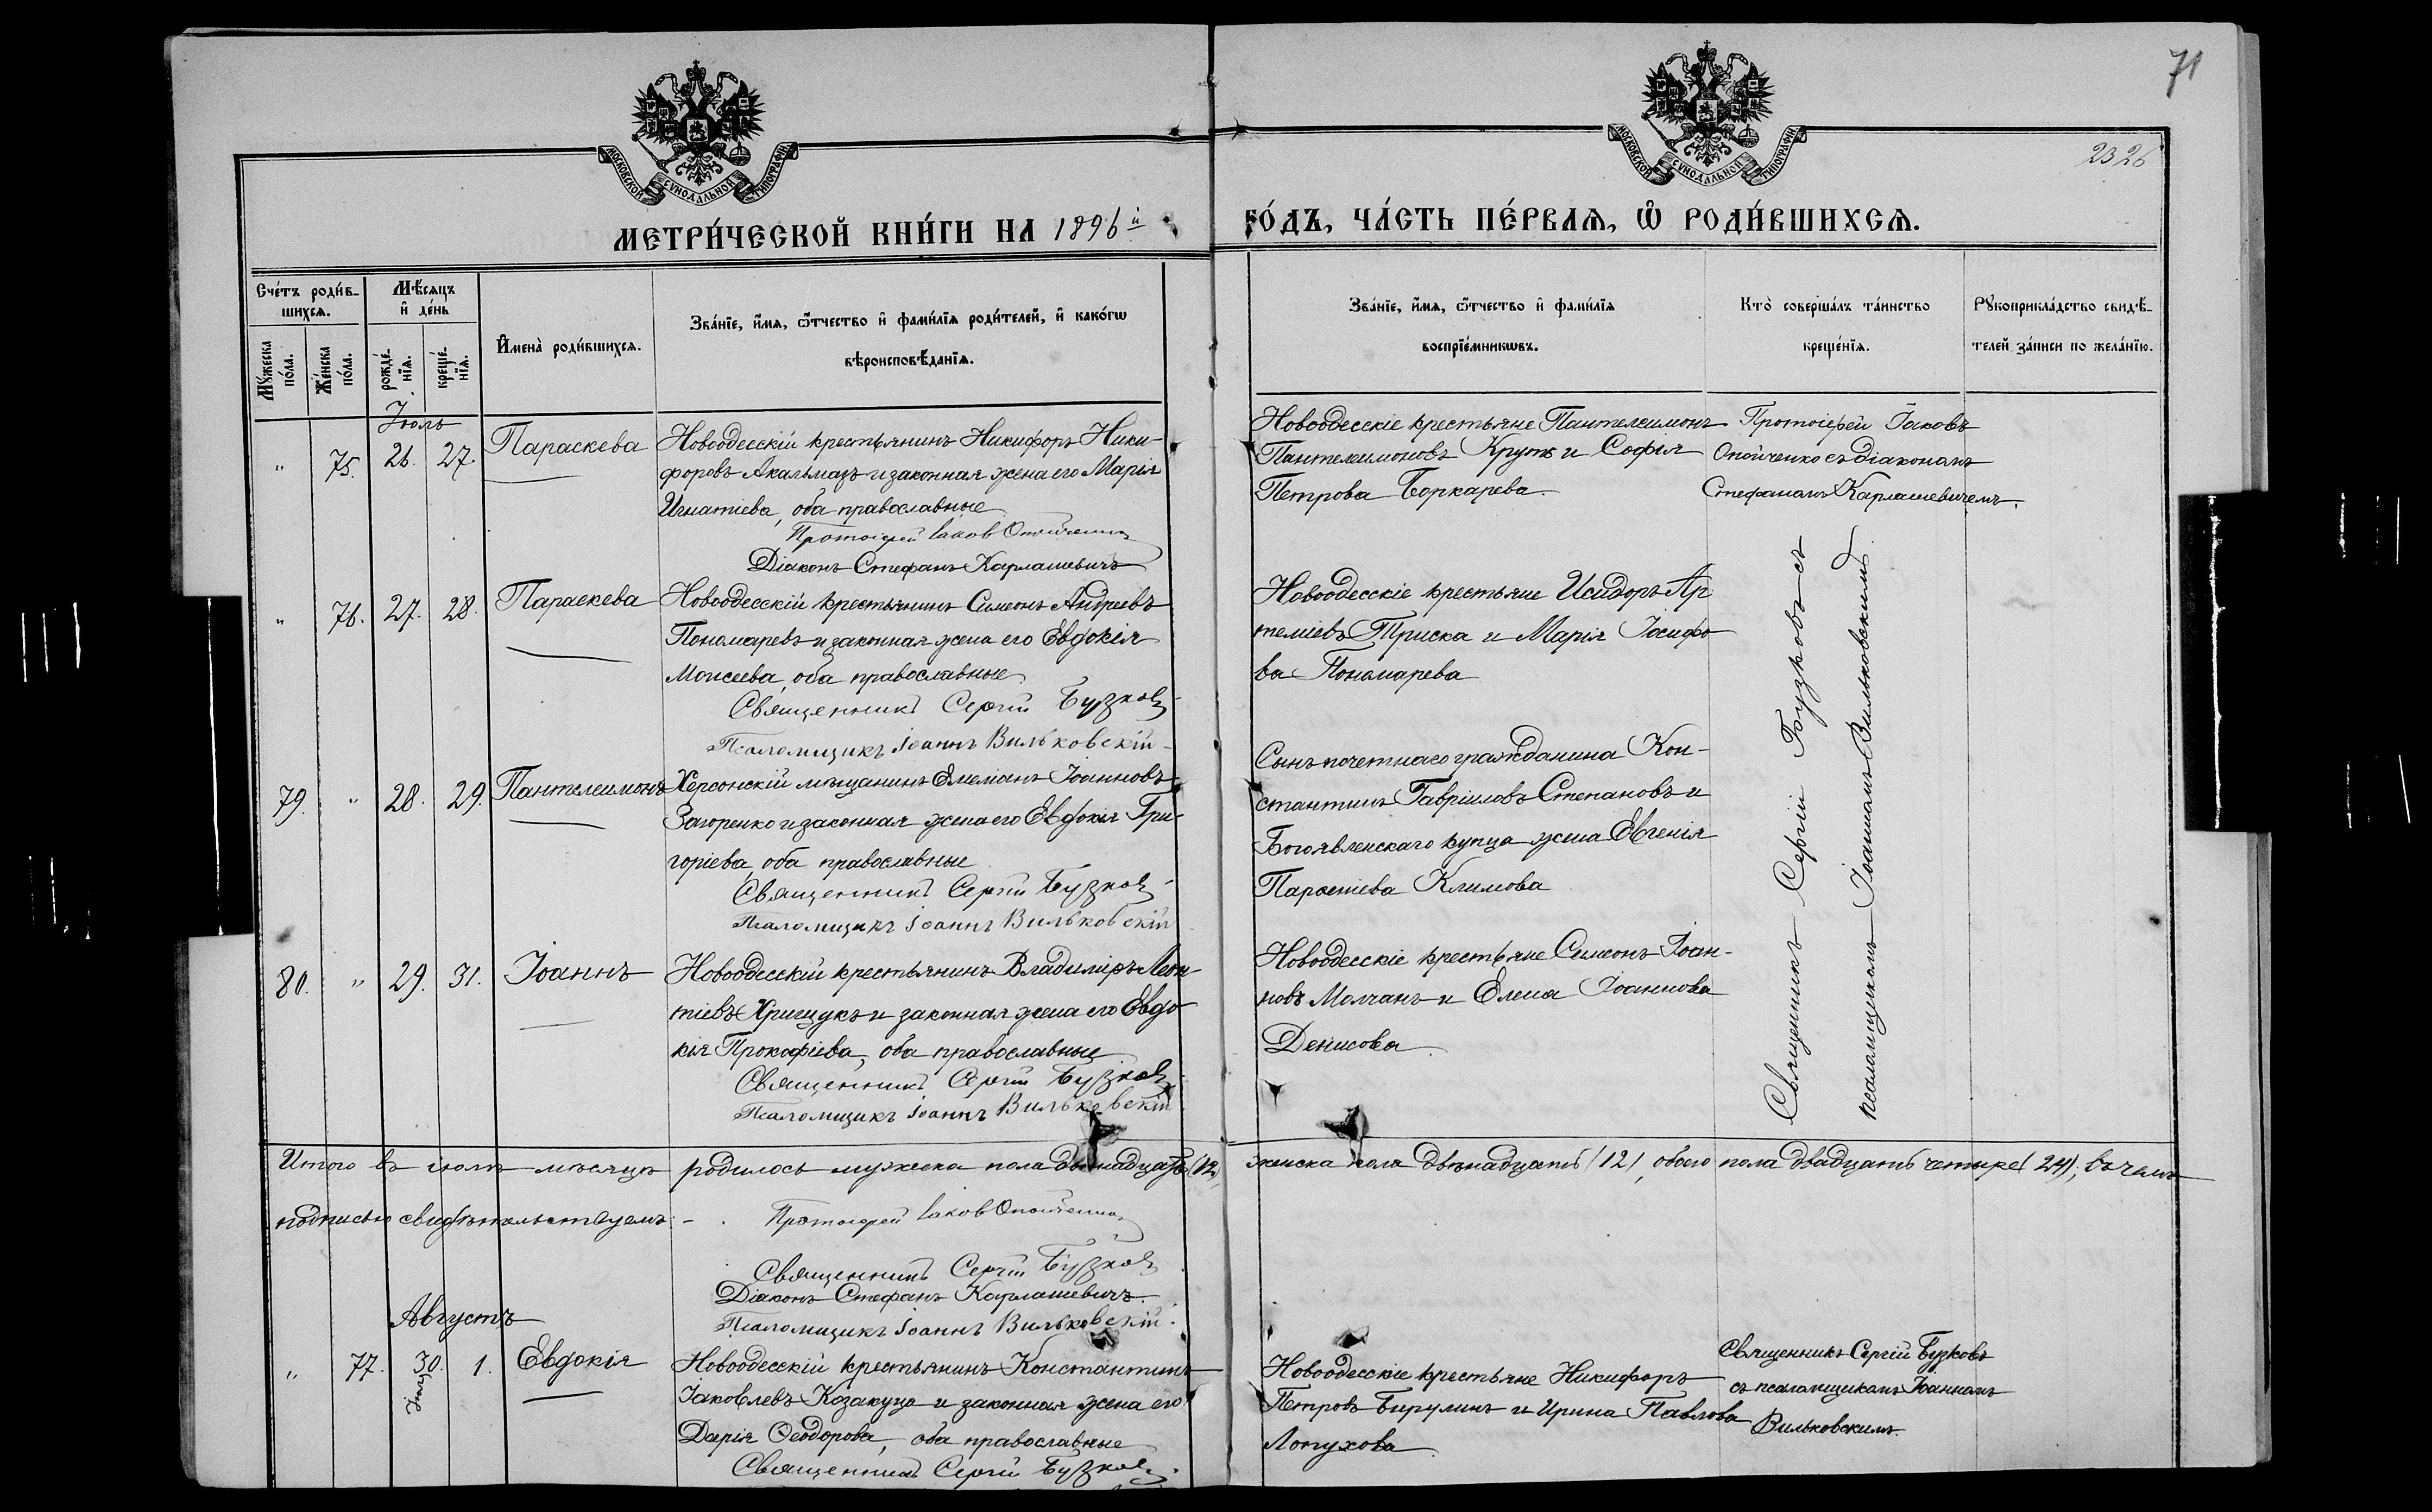 71
2326
МОСКОВСКОЙ СУНОДАЛЬНОЙ ТИПОГРАФІИ
МОСКОВСКОЙ СУНОДАЛЬНОЙ ТИПОГРАФІИ
МЕТРИ́ЧЕСКОЙ КНИ́ГИ НА 1896й
ГО́ДЪ, ЧА́СТЬ ПЕ́РВАѦ, Ѡ҆ РОДИ́ВШИХСѦ.
Сче́тъ роди́в-
шихсѧ.
Мѣ́сѧцъ
и҆ де́нь
Мꙋ́жеска
по́ла.
Же́нска
по́ла.
рожде́-
нїѧ.
креще́-
нїѧ.
И҆мена̀ роди́вшихсѧ.
Зва́нїе, и҆́мѧ, ѻ҆́тчество и҆ фами́лїѧ роди́телей, и҆ како́гѡ
вѣроисповѣ́данїѧ.
Зва́нїе, и҆́мѧ, ѻ҆́тчество и҆ фами́лїѧ
воспрїе́мникѡвъ.
Кто̀ соверша́лъ та́инство
креще́нїѧ.
Рꙋкоприкла́дство свидѣ́-
телей за́писи по жела́нїю.
Іюль
" 75. 26. 27. Параскева
Новоодесскій крестьянинъ Никифоръ Ники-
форовъ Акальмазъ и законная жена его Марія
Игнатіева, оба православные
Протоіерей Іаковъ Опойченко
Діаконъ Стефанъ Карлашевичъ
Новоодесскіе крестьяне Пантелеимонъ
Пантелеимоновъ Круть и Софія
Петрова Боркарева.
Протоіерей Іаковъ
Опойченко съ діакономъ
Стефаномъ Карлашевичемъ.
" 76. 27. 28. Параскева
Новоодесскій крестьянинъ Симеонъ Андреевъ
Пономаревъ и законная жена его Евдокія
Моисеева, оба православные
Священникъ Сергій Бузковъ
Псаломщикъ Іоаннъ Вильковскій
Новоодесскіе крестьяне Исидоръ Ар
теміевъ Триска и Марія Іосифо
ва Пономарева
79. " 28. 29. Пантелеимонъ
Херсонскій мѣщанинъ Емеліанъ Іоанновъ
Загоренко и законная жена его Евфокія Гри-
горіева, оба православные
Священникъ Сергій Бузковъ
Псаломщикъ Іоаннъ Вильковскій
Сынъ почетнаго гражданина Кон-
стантинъ Гавріиловъ Степановъ и
Богоявленскаго купца жена Евгенія
Климова
80. " 29. 31. Іоаннъ
Новоодесскій крестьянинъ Владиміръ Леон-
тіевъ Хрищукъ и законная жена его Евдо
кія Прокофіева, оба православные
Священникъ Сергій Бузковъ
Псаломщикъ Іоаннъ Вильковскій
Новоодесскіе крестьяне Симеонъ Іоан-
новъ Молчанъ и Елена Іоаннова
Денисова
Священникъ Сергій Бузковъ съ
псаломщикомъ Іоанномъ Вильковскимъ.
Итого въ іюлѣ мѣсяцѣ родилось мужеска пола двѣнадцать (12),
женска пола двѣнадцать (12), обоего пола двадцать четыре (24); въ чемъ
подписью свидѣтельствуемъ: -
Протоіерей Іаковъ Опойченко
Священникъ Сергій Бузковъ
Діаконъ Стефанъ Карлашевичъ.
Псаломщикъ Іоаннъ Вильковскій.
Августъ
" 77. 30. 1. Евдокія
Іюл
Новоодесскій крестьянинъ Константинъ
Іаковлевъ Козакуца и законная жена его
Дарія Ѳеодорова, оба православные
Священникъ Сергій Бузковъ
Новоодесскіе крестьяне Никифоръ
Петровъ Бирулинъ и Ирина Павлова
Лопухова
Священникъ Сергій Бузковъ
съ псаломщикомъ Іоанномъ
Вильковскимъ.